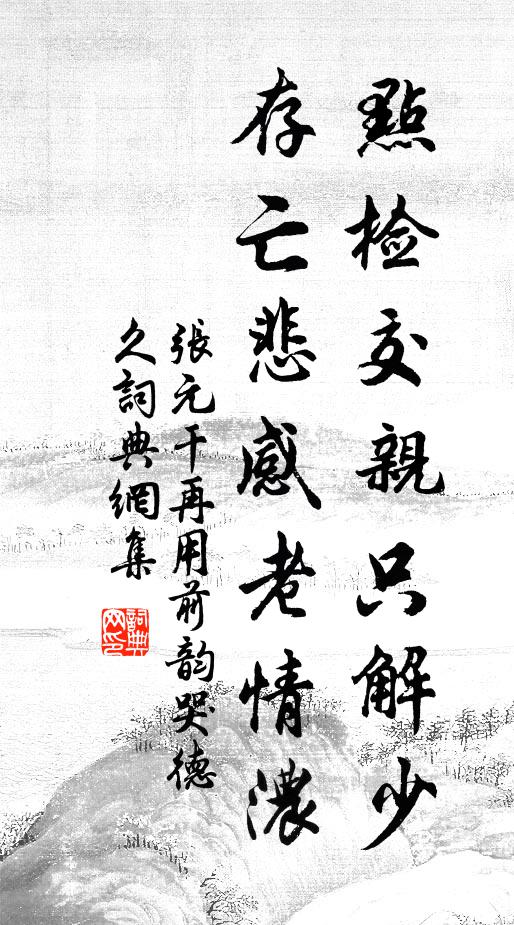 點檢交親只解少
存亡悲感老情濃
張元干再用前韵哭德
久詞典網集
詞典
网印